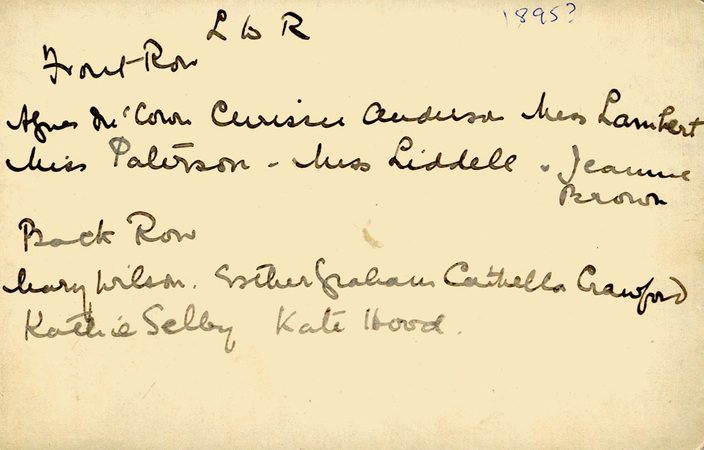 1895?
L to R
Front Row
Agnes Mc'Cown Chrissie Anderson Miss Lambert
Miss Paterson - Miss Liddell . Jeannie
Brown
Back Row
Mary Wilson. Esther Graham Cathella Crawford
Kathie Selby Kate Hood.